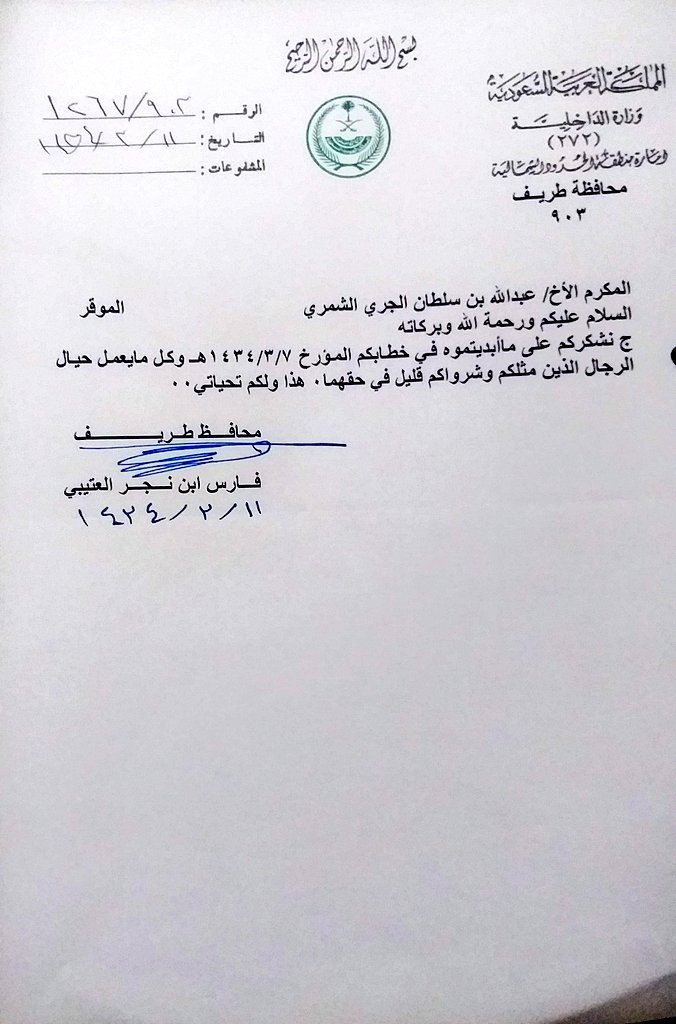 بسم الله الرحمن الرحيم
المملكة العربية السعودية
وزارة الداخلية
(٢٧٢)
امارة منطقة الحدود الشمالية
محافظة طريف
٩٠٣
الرقم : ١٢٦٧/٩٠٣
التاريخ :
المشفوعات :
المكرم الأخ/ عبدالله بن سلطان الجري الشمري الموقر
السلام عليكم ورحمة الله وبركاته
ج نشكركم على ماأبديتموه في خطابكم المؤرخ ١٤٣٤/٣/٧هـ وكل مايعمل حيال
الرجال الذين مثلكم وشرواكم قليل في حقهما٠ هذا ولكم تحياتي٠٠
محافظ طريف
فارس ابن نجر العتيبي
١٤٣٤/٣/١١